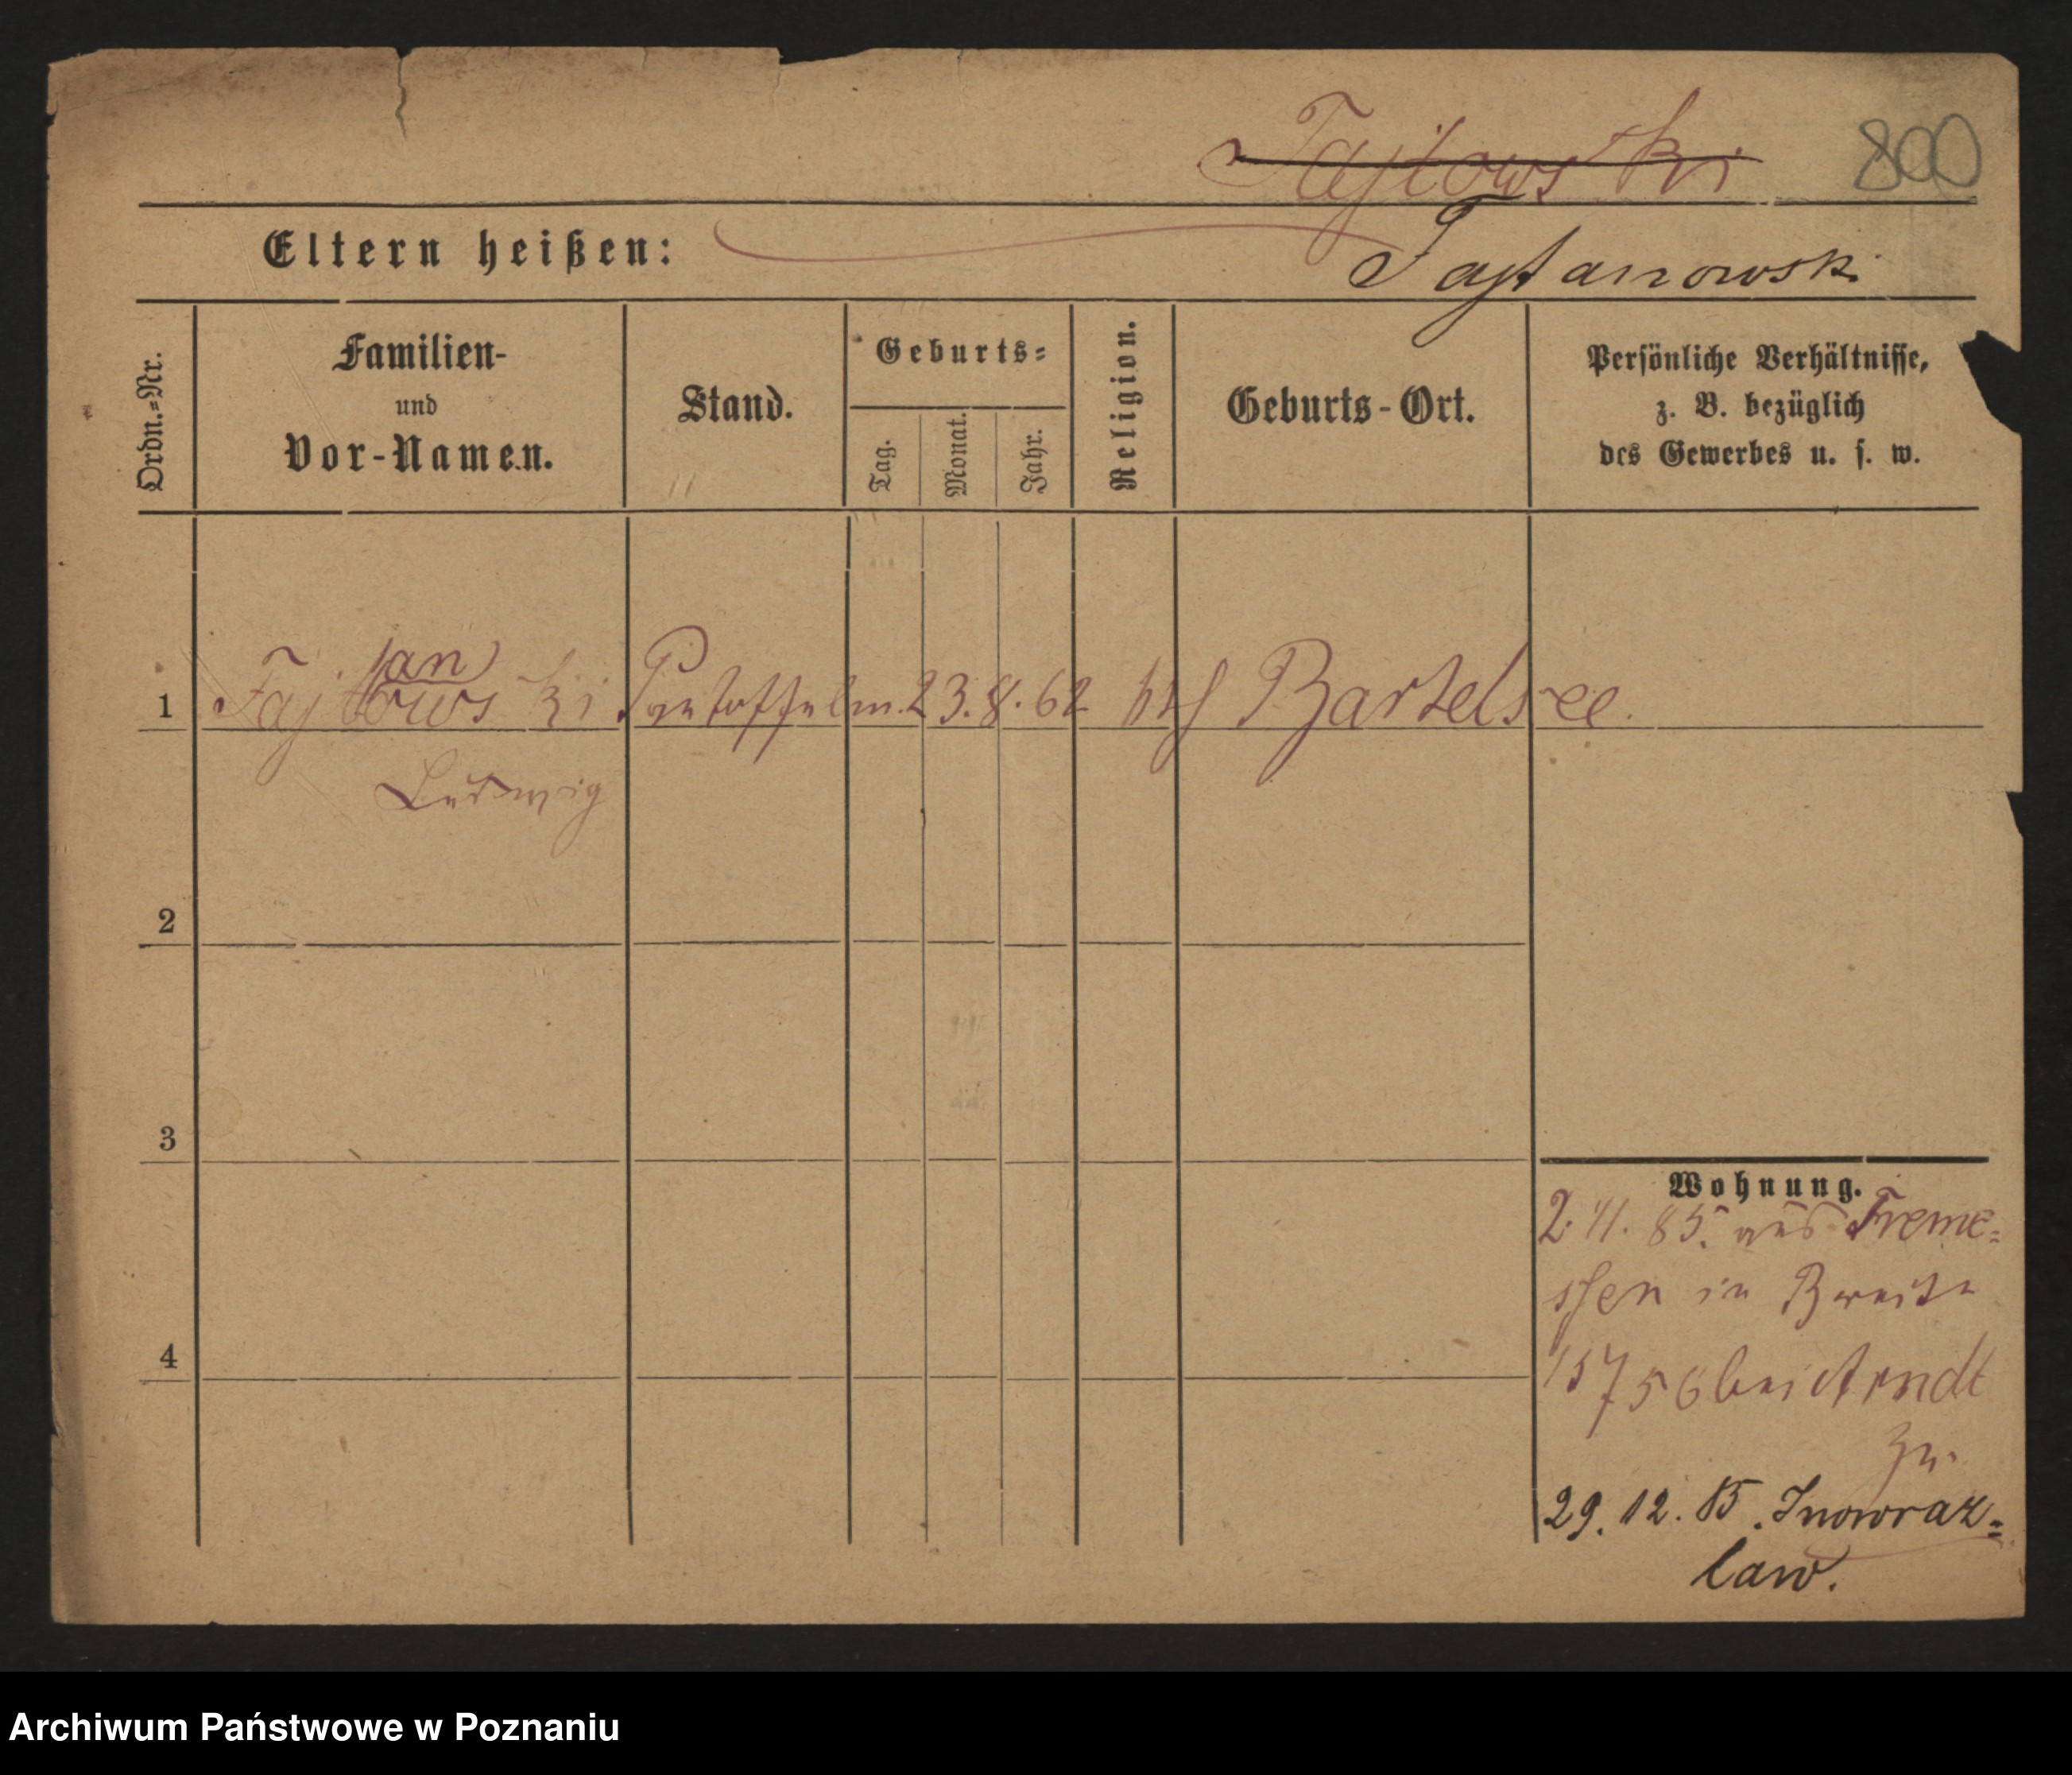 Tajtowski 800
Eltern heißen: Tajtanowski
Ordn.-Nr.
Familien-
und
Vor-Namen.
Stand.
Geburts-
Tag.
Monat.
Jahr.
Religion.
Geburts-Ort.
Persönliche Verhältnisse,
z. B. bezüglich
des Gewerbes u. s. w.
an
1 Tajtowski Pantoffelm. 23. 8. 62 kth Bartelsee.
Ludwig
2
3
4
Wohnung.
2. 11. 85. aus Treme-
ssen in
bei Arndt
zu.
29. 12. 85. Inowraz-
law.
Archiwum Państwowe w Poznaniu